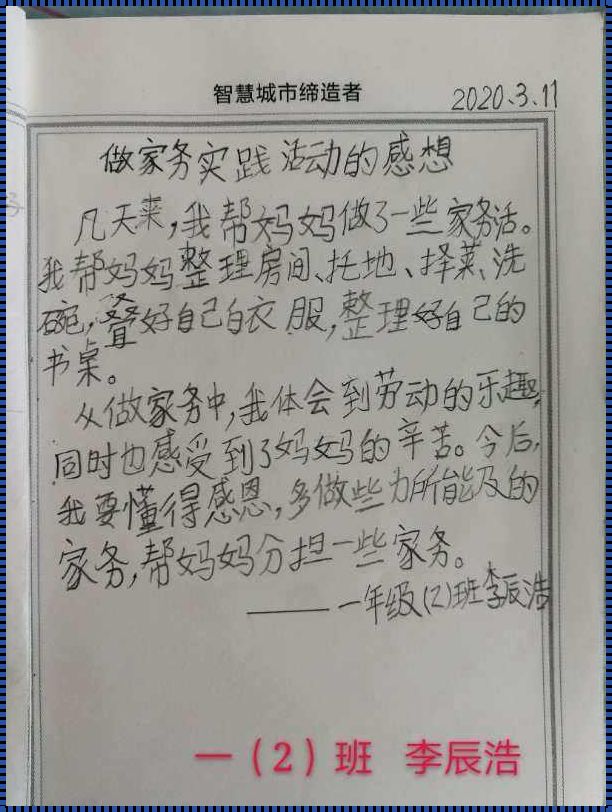 智慧城市缔造者
2020.3.11
做家务实践活动的感想
几天来,我帮妈妈做了一些家务活。
我帮妈妈整理房间、托地、择菜、洗
碗,叠好自己白衣服,整理好自己的
书桌。
从做家务中,我体会到劳动的乐趣,
同时也感受到了妈妈的辛苦。今后,
我要懂得感恩,多做些力所能及的
家务,帮妈妈分担一些家务。
——一年级(2)班李辰浩
一(2)班 李辰浩